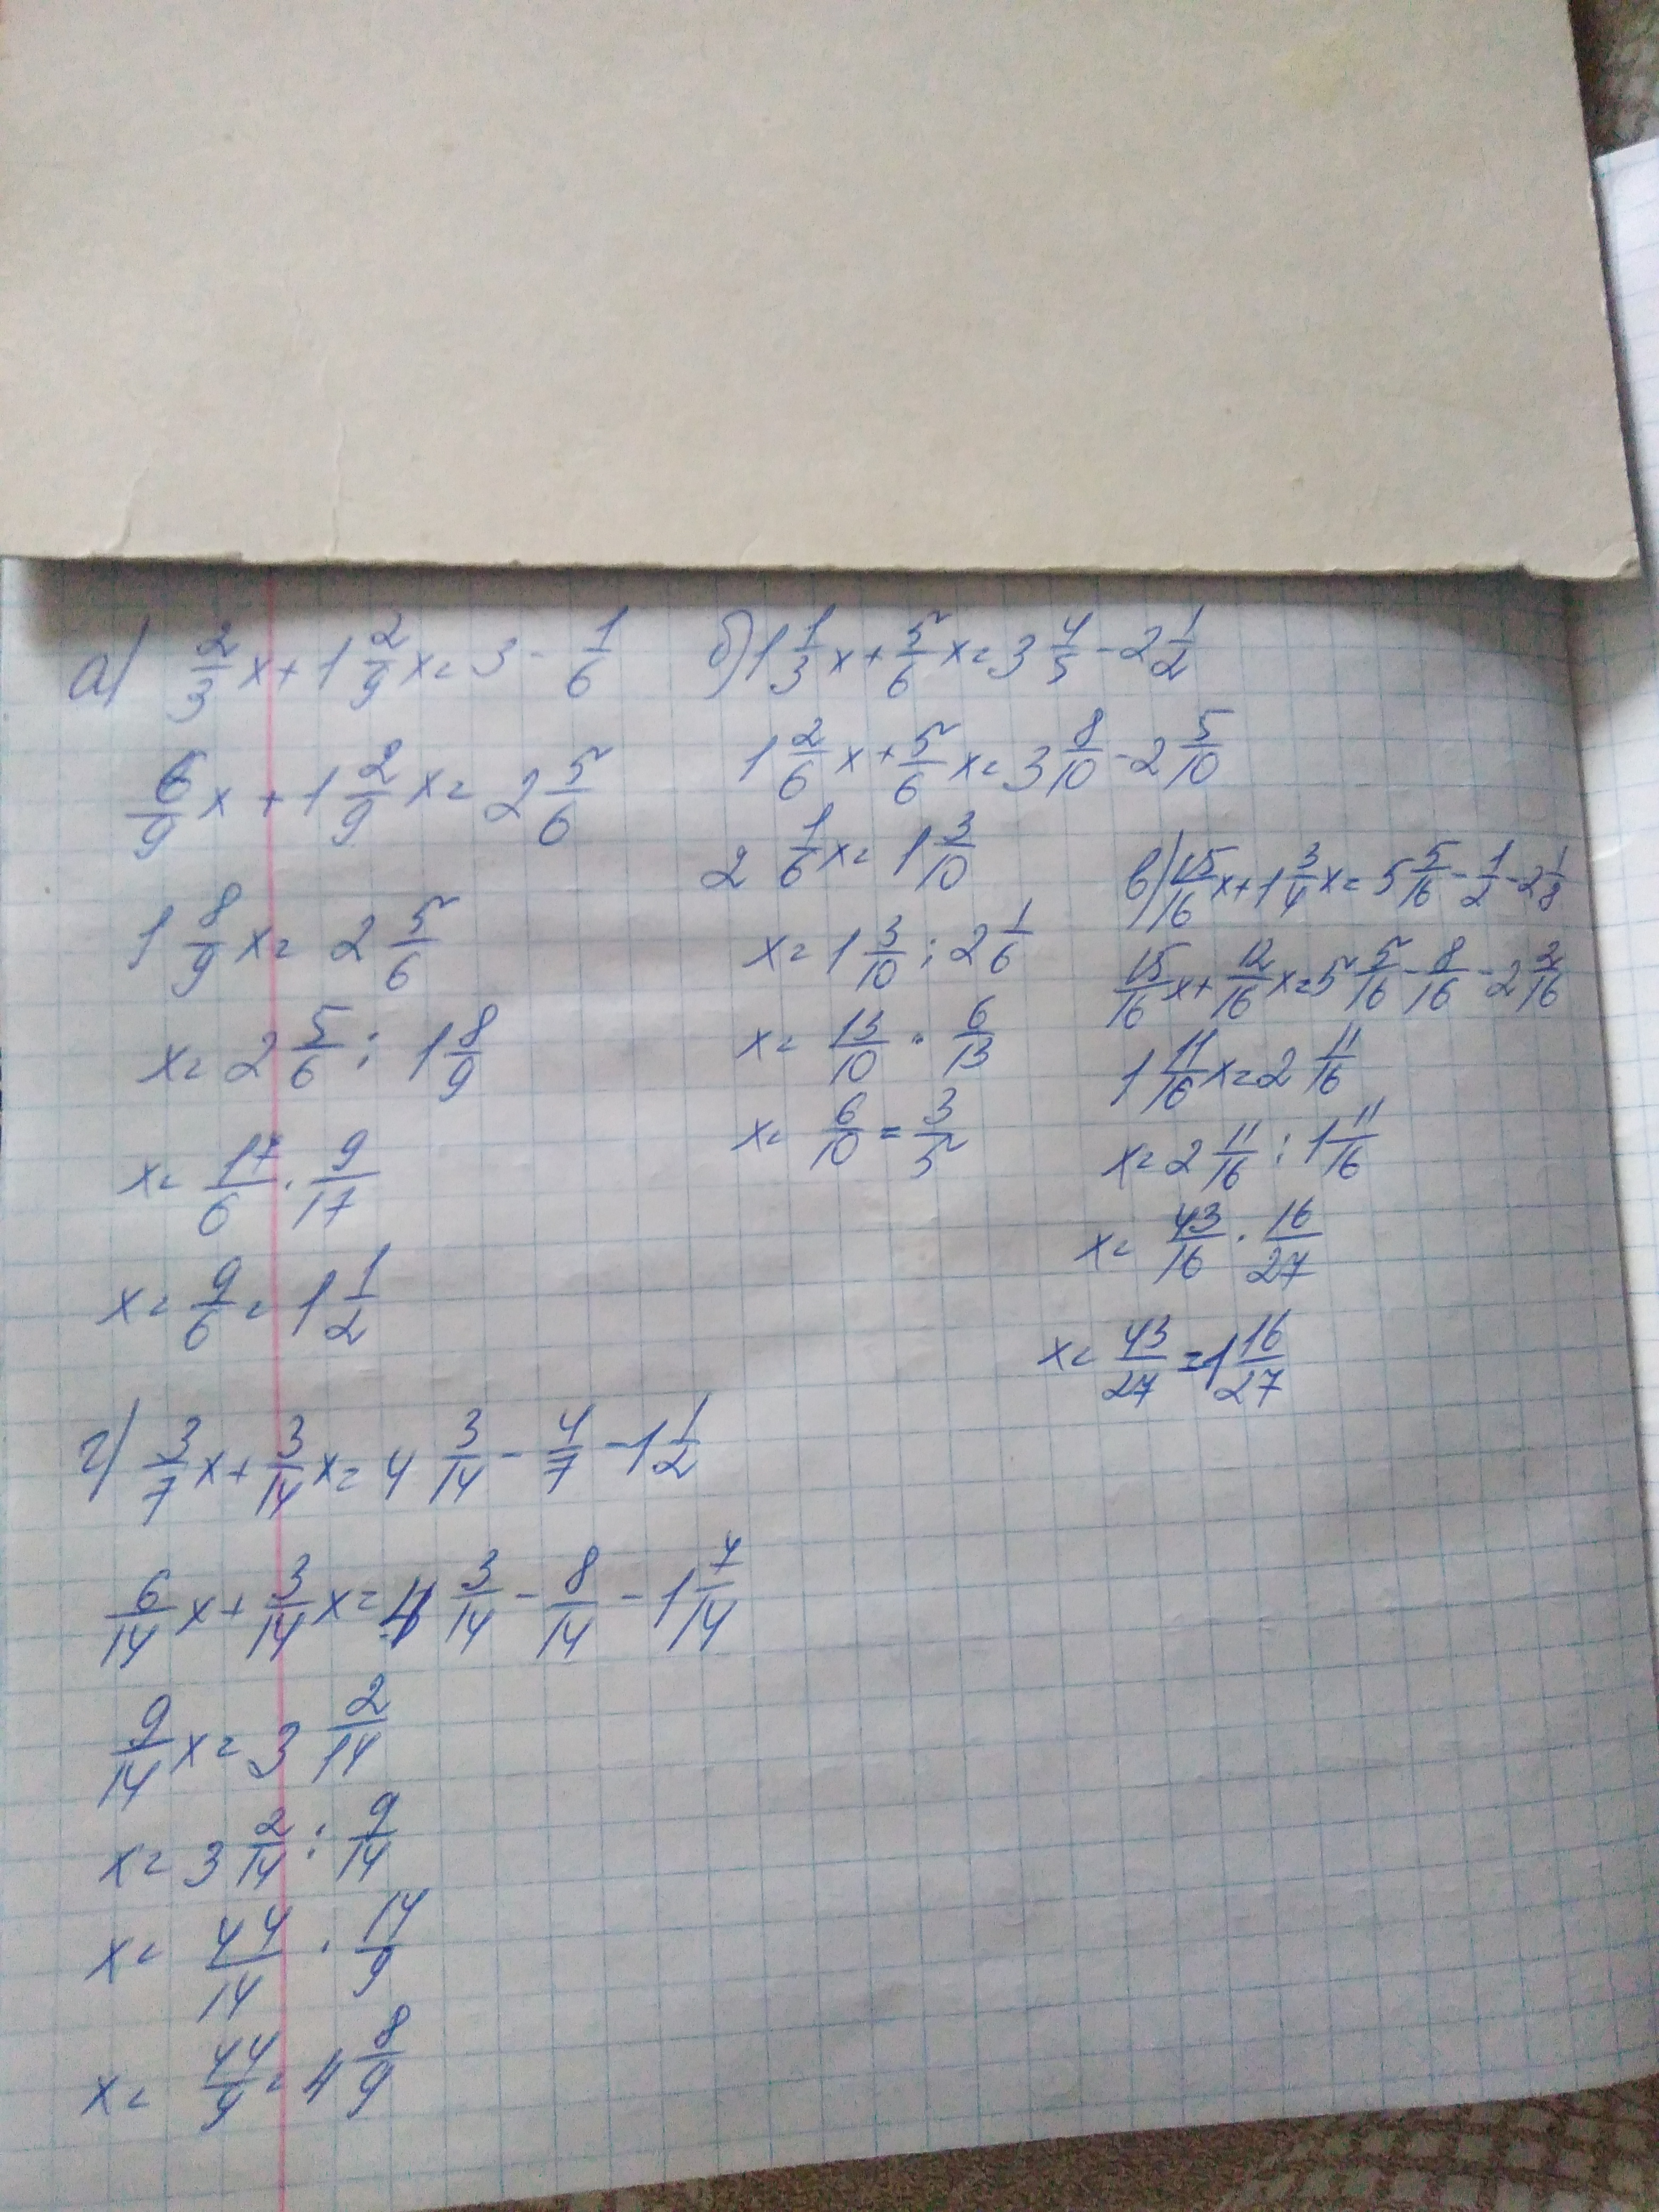 а) 2/3 x + 1 2/9 x = 3 - 1/6
6/9 x + 1 2/9 x = 2 5/6
1 8/9 x = 2 5/6
x = 2 5/6 : 1 8/9
x = 17/6 · 9/17
x = 9/6 = 1 1/2
б) 1 1/3 x + 5/6 x = 3 4/5 - 2 1/2
1 2/6 x + 5/6 x = 3 8/10 - 2 5/10
2 1/6 x = 1 3/10
x = 1 3/10 : 2 1/6
x = 13/10 · 6/13
x = 6/10 = 3/5
в) 15/16 x + 1 3/4 x = 5 5/16 - 1/2 - 2 1/8
15/16 x + 12/16 x = 5 5/16 - 8/16 - 2 2/16
1 11/16 x = 2 11/16
x = 2 11/16 : 1 11/16
x = 43/16 · 16/27
x = 43/27 = 1 16/27
г) 3/7 x + 3/14 x = 4 3/14 - 4/7 - 1 1/2
6/14 x + 3/14 x = 4 3/14 - 8/14 - 1 7/14
9/14 x = 3 2/14
x = 3 2/14 : 9/14
x = 44/14 · 14/9
x = 44/9 = 4 8/9